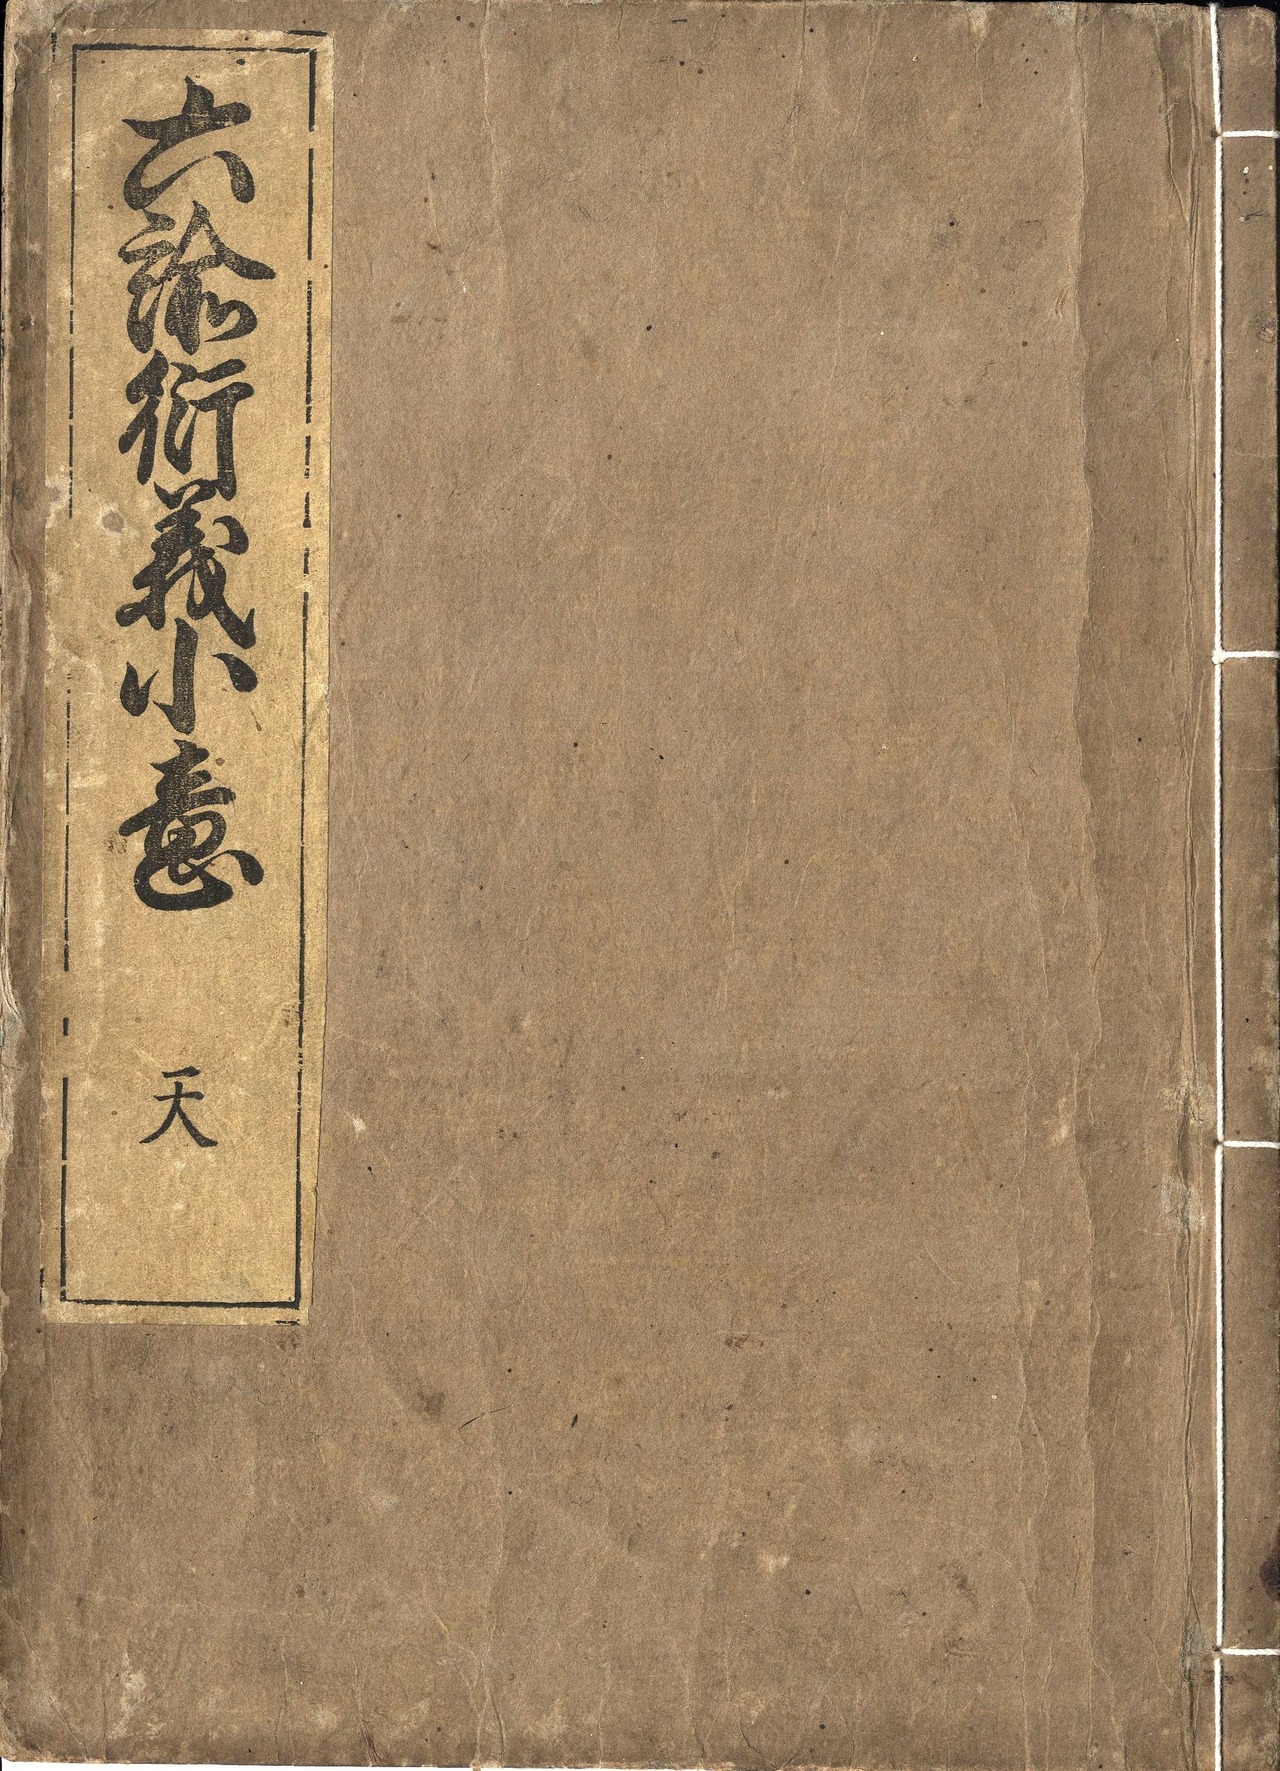 六諭衍義小意 天